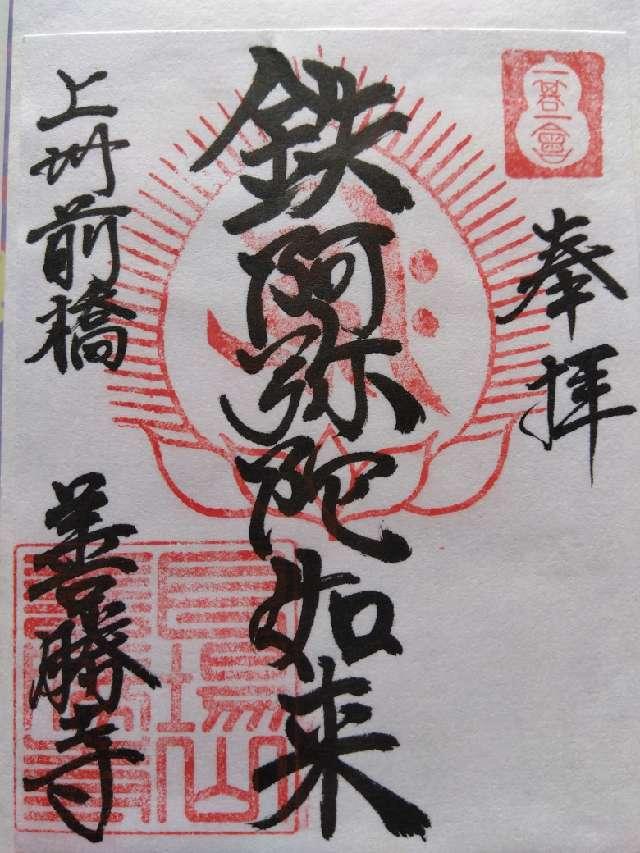 奉拝
鉄阿弥陀如来
上州前橋
善勝寺